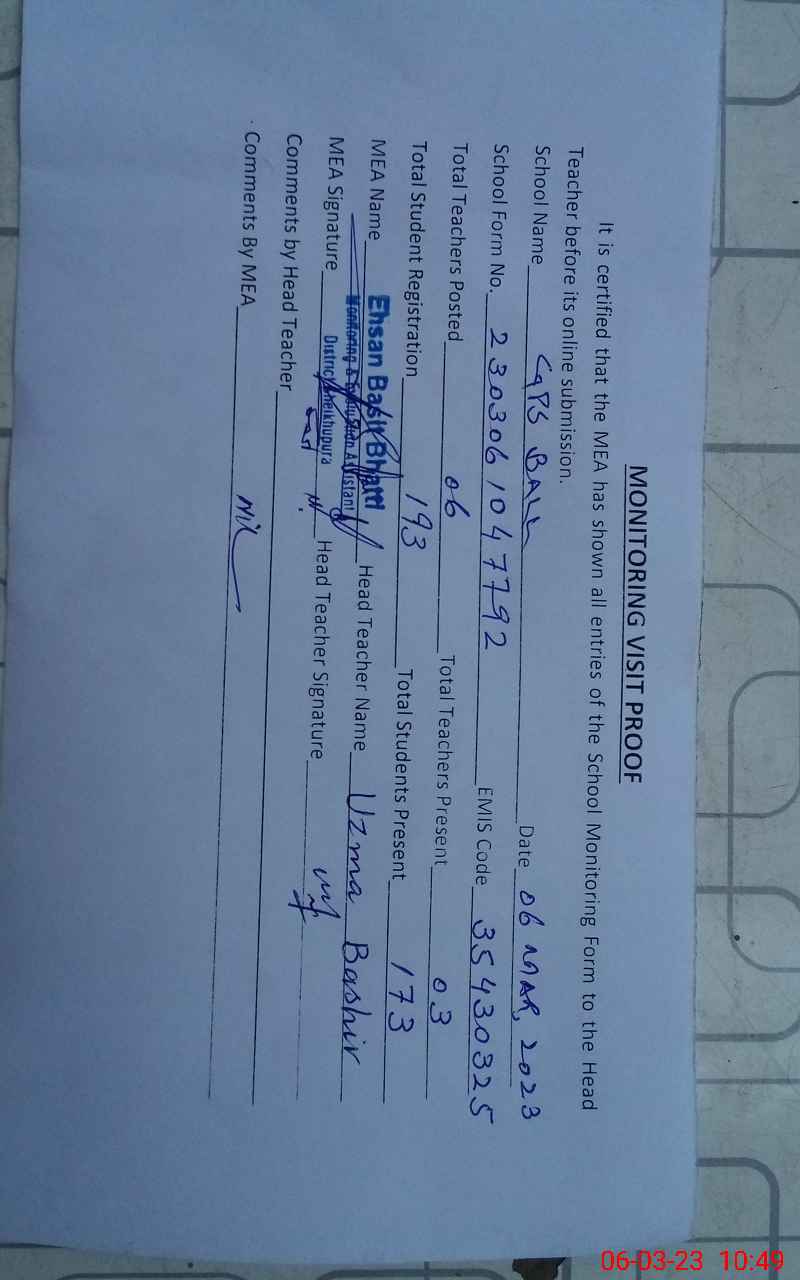 MONITORING VISIT PROOF
It is certified that the MEA has shown all entries of the School Monitoring Form to the Head
Teacher before its online submission.
School Name GPS BALL Date 06 MAR, 2023
School Form No. 230306 1047792 EMIS Code 35430325
Total Teachers Posted 06 Total Teachers Present 03
Total Student Registration 193 Total Students Present 173
MEA Name Ehsan Basit Bhatti Head Teacher Name Uzma Bashir
Monitoring & Evaluation Assistant
District Sheikhupura
MEA Signature Head Teacher Signature
Comments by Head Teacher
Comments By MEA Nil
06-03-23 10:49